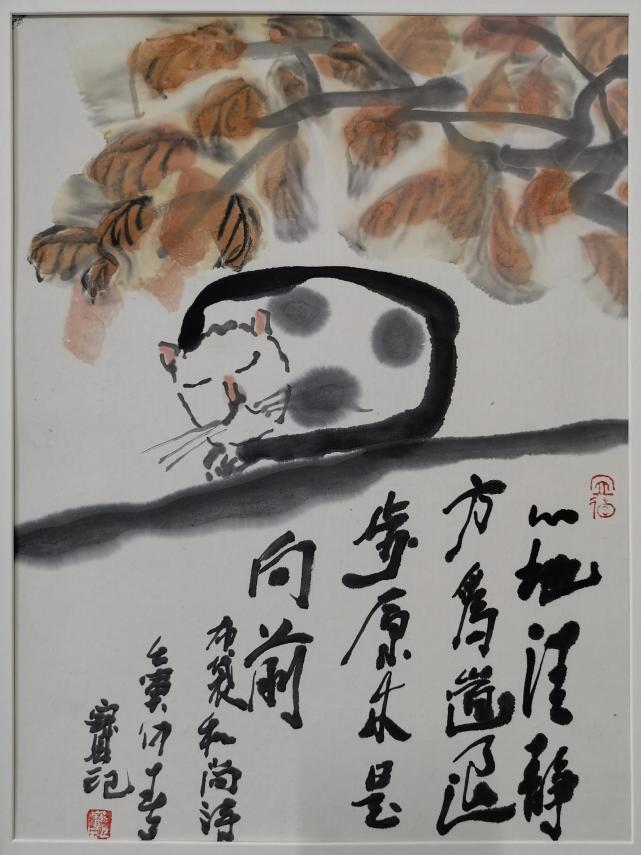 心地清静
方為道退
步原来是
向前
布袋和尚诗
壬寅仲春
寶記